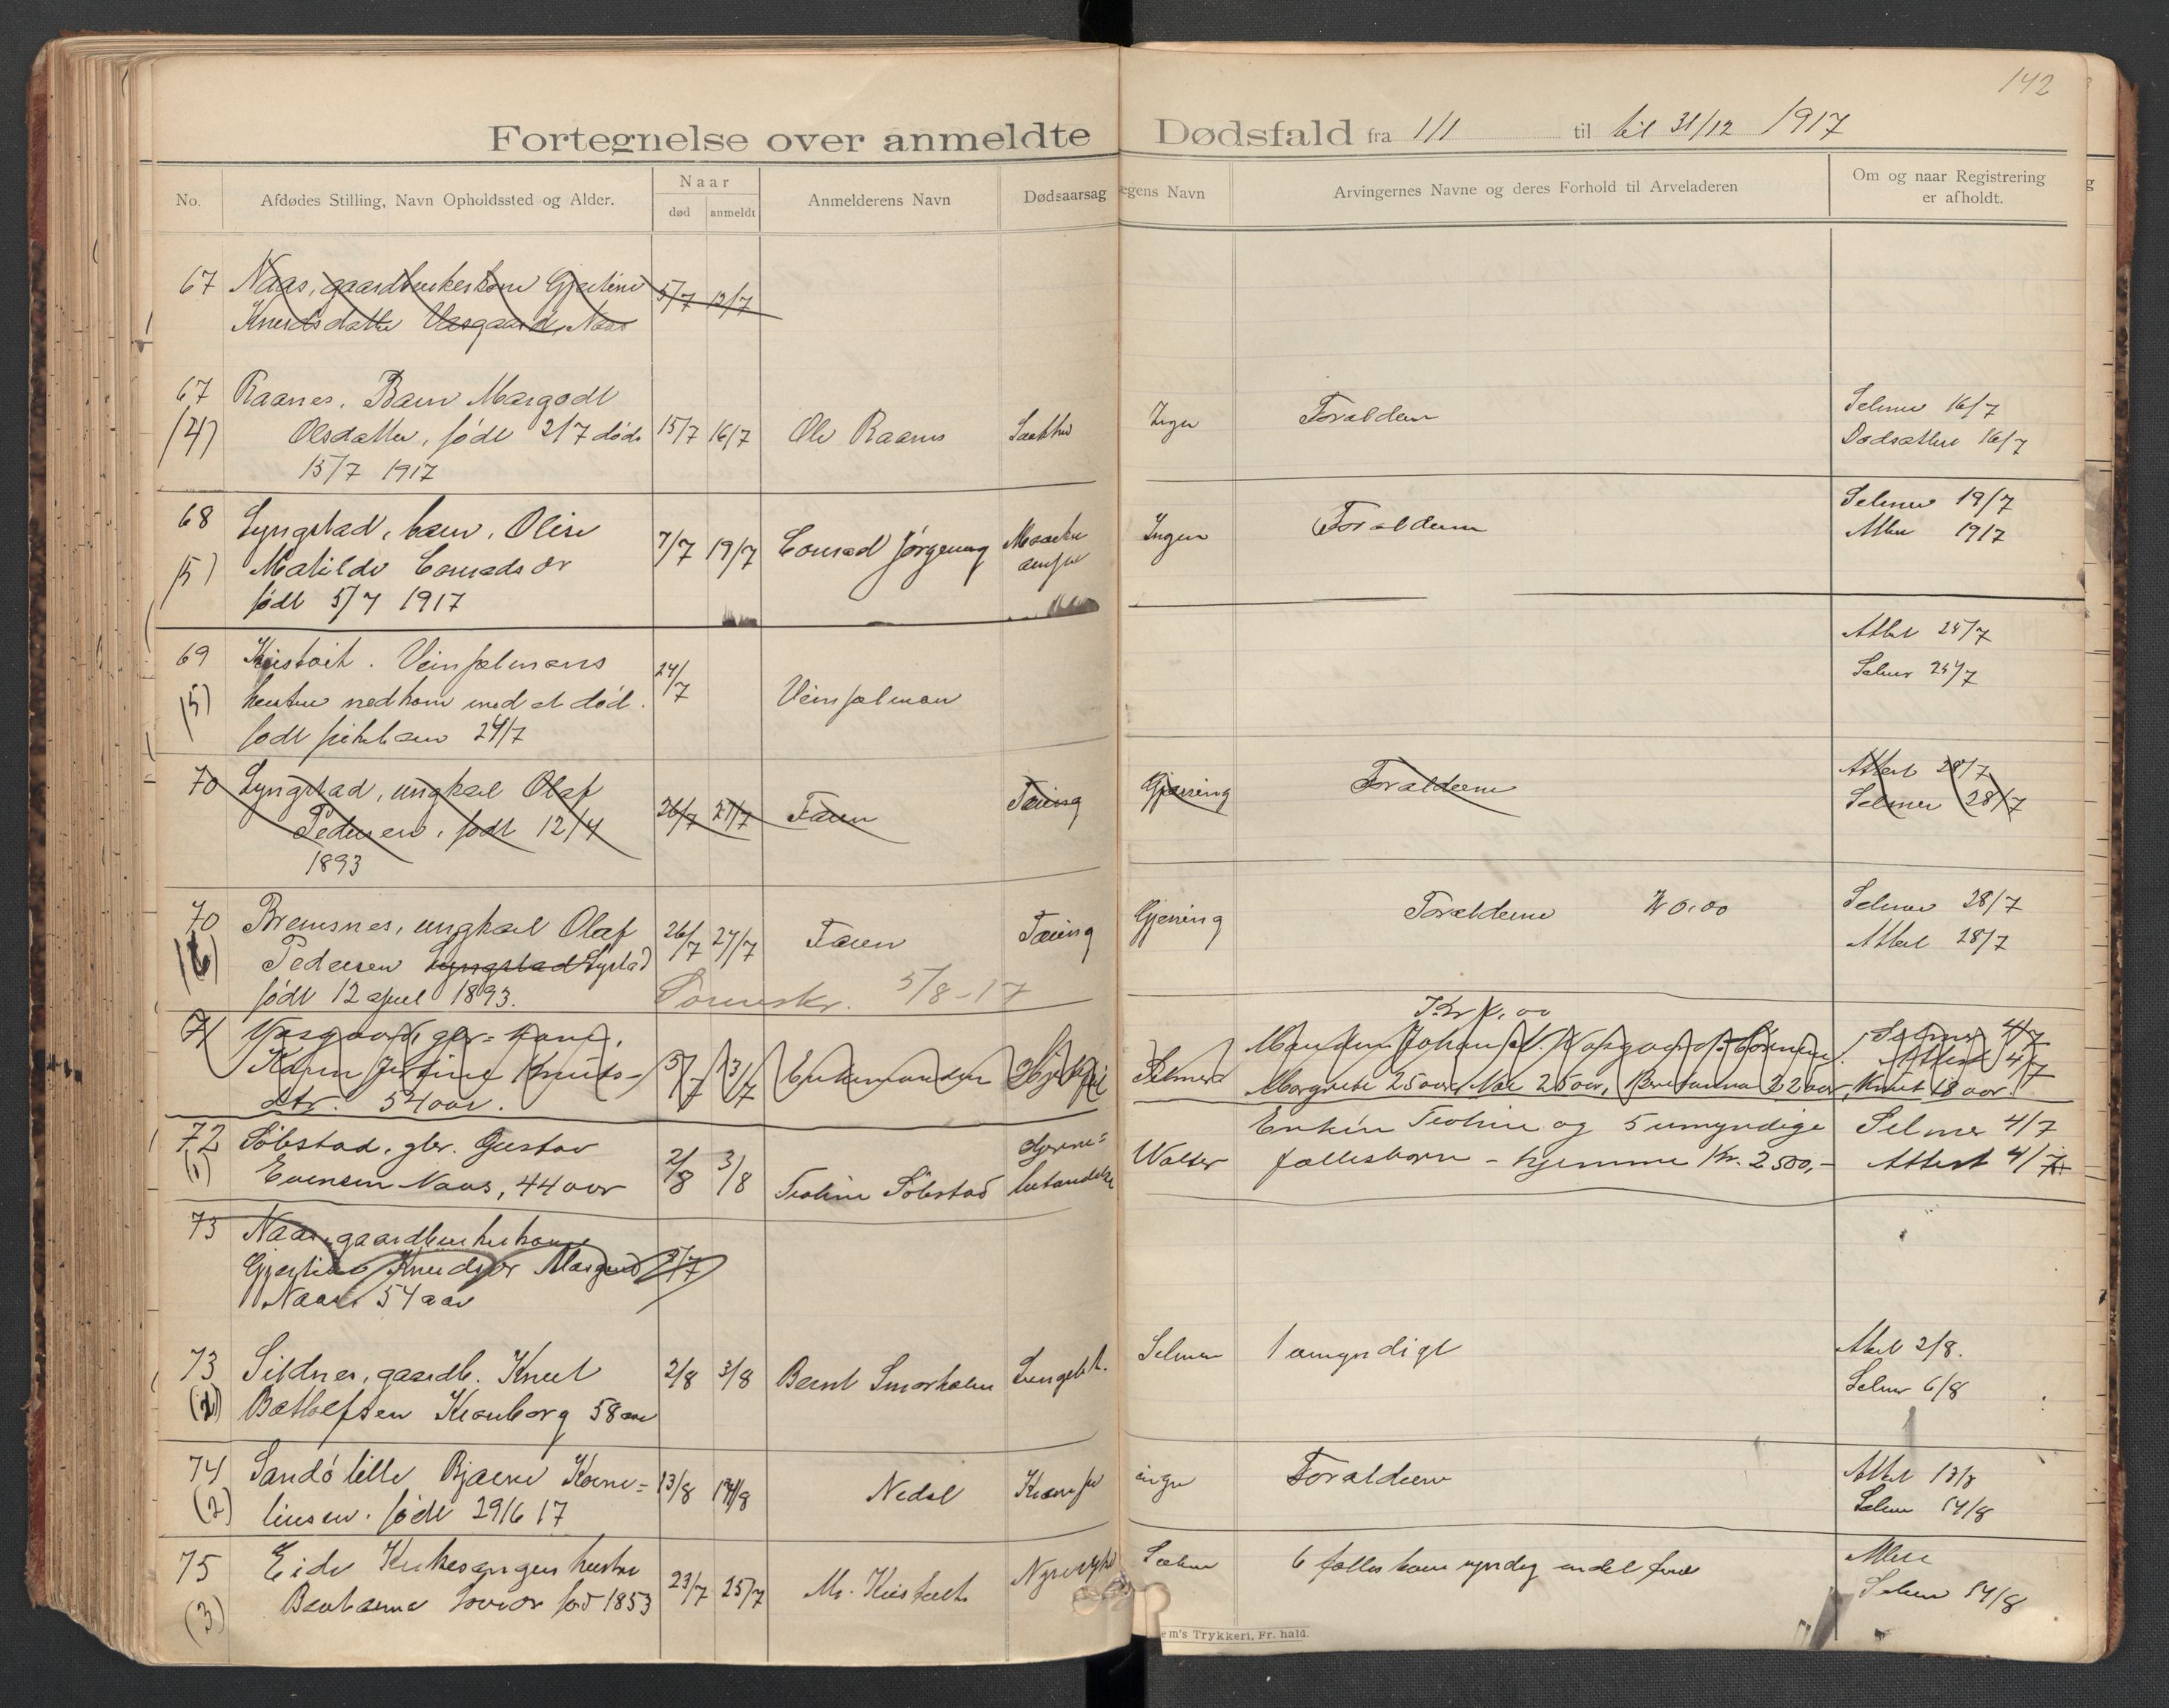 142
Fortegnelse over anmeldte Dødsfald fra 1/1 til til 31/12 1917
No.
Afdødes Stilling, Navn Opholdssted og Alder.
Naar
død
anmeldt
Anmelderens Navn
Dødsaarsag
egens Navn
Arvingernes Navne og deres Forhold til Arveladeren
Om og naar Registrering
er afholdt.
67 Naas, gaardbrukerkone Gjertine 5/7 12/7
Knudsdatter Vasgaard, Naas
67 Raanes. Barn Margodt
(4) Olsdatter, født 2/7 døde 15/7 16/7 Ole Raanes Inger Forældrene Selmer 16/7
Dødsattest 16/7
15/7 1917
68 Lyngstad, barn, Oline
(5) Matilde Conradsdr 7/7 19/7 Conrad Jørgensen Ingen Forældrene Selmer 19/7
Attest 19/7
født 5/7 1917
69 Kristvik. Veinsalmans
(5) hustru nedkom med et død 24/7 Veinsalman Attest 25/7
Selmer 25/7
født pikebarn 24/7
70 Lyngstad, ungkarl Olaf
Pedersen, født 12/4 26/7 27/7 Faren Tæring Gjerring Forældrene Attest 28/7
Selmer 28/7
1893
70 Bremsnes, ungkarl Olaf
(6) Pedersen Lyngstad Lystad 26/7 27/7 Faren Tæring Gjerring Forældrene Kr 0,00 Selmer 28/7
Attest 28/7
født 12 april 1893.
5/8-17
71 Vasgaard, gbr. kone,
Karen Jertine Knuts-
dtr. 54 aar. 5/7 13/7 Enkemanden Selmer
Manden Johan Selmer 4/7
Attest 4/7
Margrete 25 aar, 25 aar, 22 aar, Knut 18 aar.
72 Sølstad, gbr. Gustav
(1) Evensen Naas, 44 aar 2/8 3/8 Teoline Sølstad Hjerne=
betændelse Walter
Enken Teoline og 5 umyndige Selmer 4/7
fællesbarn – hjemme Kr. 2500,- Attest 4/7
73 Naas, gaardbrukerkone
Gjertine Knudsdr Vasgaard 5/7
Naas 54 aar
73 Sildnes, gaardb. Knut 2/8 3/8 Bernt Smorholm Lungebet. Selmer 1 umyndigt Attest 2/8.
Selmer 6/8
(2) Kronborg 58 aar
74 Sandø lille Bjarne Korne= 13/8 14/8 Nedal Krampe ingen Forældrene Attest 13/8
Selmer 14/8
(2) liusen. født 29/6 17
75 Eide Kirkesangers hustru
(3) født 1853 23/7 25/7 Selmer 6 fælles barn myndig Attest
Selmer 14/8
em's Trykkeri, Fr. hald.